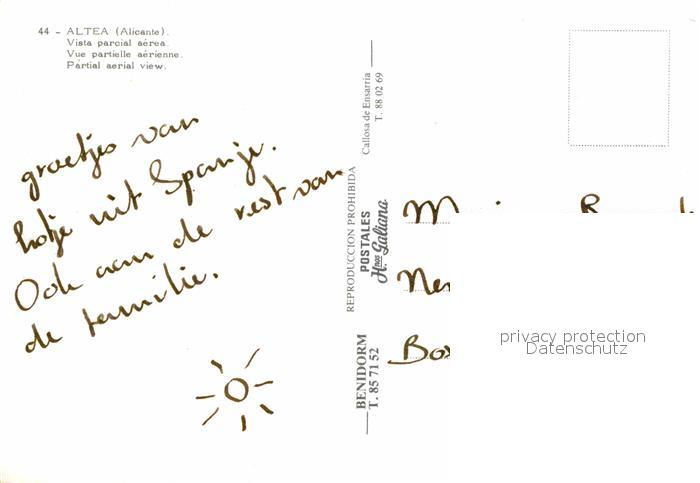 44 - ALTEA (Alicante).
Vista parcial aérea.
Vue partielle aérienne.
Partial aerial view.
groetjes van
hotje uit Spanje.
Ook aan de rest van
de familie.
Callosa de Ensarria
T. 88 02 69
REPRODUCCION PROHIBIDA
POSTALES
Hnos Galiana
BENIDORM
T. 85 71 52
privacy protection
Datenschutz